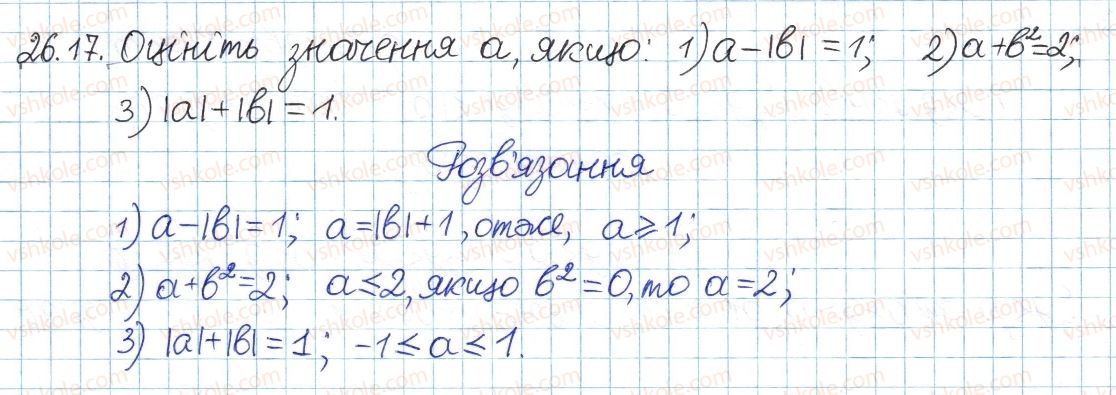 26.17. Оцініть значення а, якщо: 1) a-|b|=1; 2) a+b²=2;
3) |a|+|b|=1.
Розв'язання
1) a-|b|=1; a=|b|+1, отже, a≥1;
2) a+b²=2; a≤2, якщо b²=0, то a=2;
3) |a|+|b|=1; -1≤a≤1.